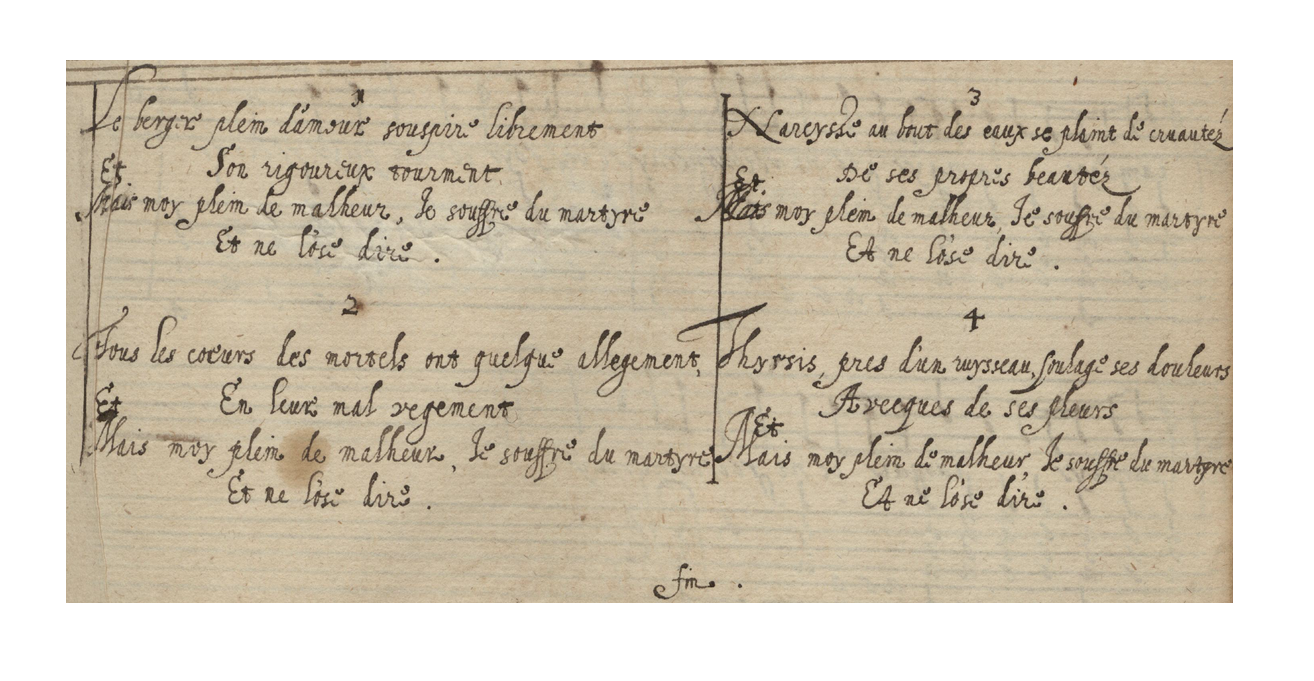 1
Le berger plein d'amour souspire librement
Son rigoureux tourment
Et
Mais moy plein de malheur, Je souffre du martyre
Et ne l'ose dire.
2
Tous les coeurs des mortels ont quelque allegement,
En leur mal vegement
Et
Mais moy plein de malheur, Je souffre du martyre
Et ne l'ose dire.
3
Narcysse au bout des eaux se plaint de cruautéz
De ses propres beautéz
Et
Mais moy plein de malheur, Je souffre du martyre
Et ne l'ose dire.
4
Thyrsis, pres d'un ruysseau, soulage ses douleurs
Avecques de ses pleurs
Et
Mais moy plein de malheur, Je souffre du martyre
Et ne l'ose dire.
fin.